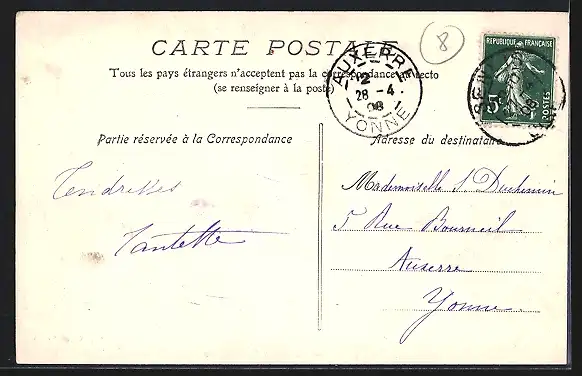 8
CARTE POSTALE
Tous les pays étrangers n'acceptent pas la correspondance au recto
(se renseigner à la poste)
AUXERRE
2
28 -4
08
YONNE
REPUBLIQUE FRANÇAISE
5c
POSTES
Partie réservée à la Correspondance
Adresse du destinataire
Tendresses
Tantette
Mademoiselle S. Duchemin
5 Rue Bourneil
Auxerre
Yonne